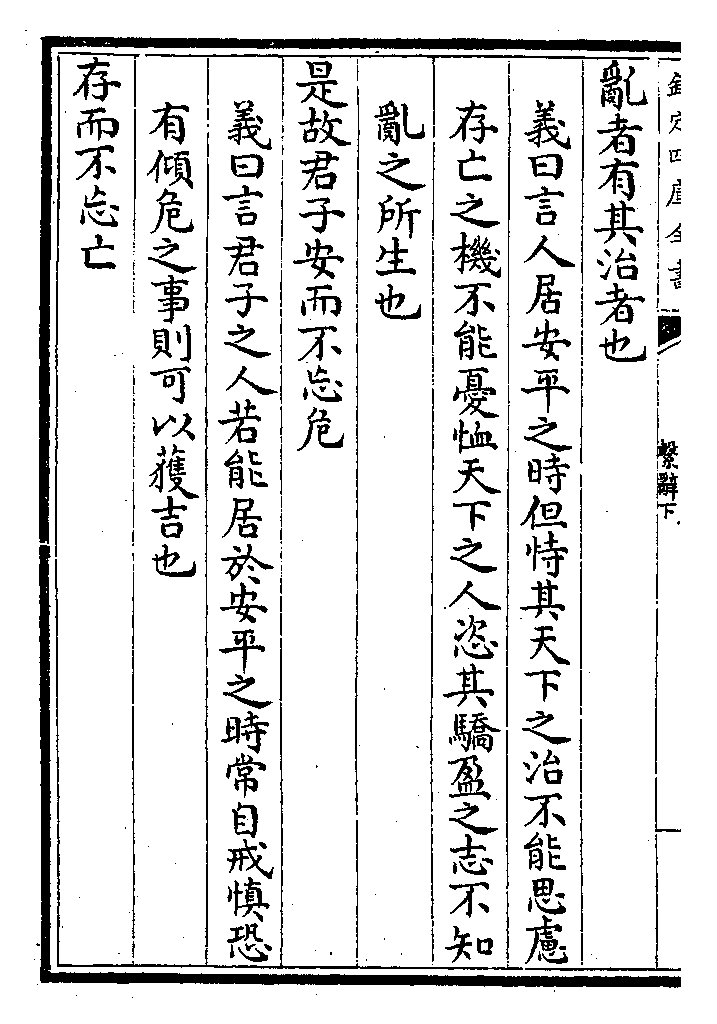 欽定四庫全書
繫辭下
亂者有其治者也
義曰言人居安平之時但恃其天下之治不能思慮
存亡之機不能憂恤天下之人恣其驕盈之志不知
亂之所生也
是故君子安而不忘危
義曰言君子之人若能居於安平之時常自戒慎恐
有傾危之事則可以獲吉也
存而不忘亡